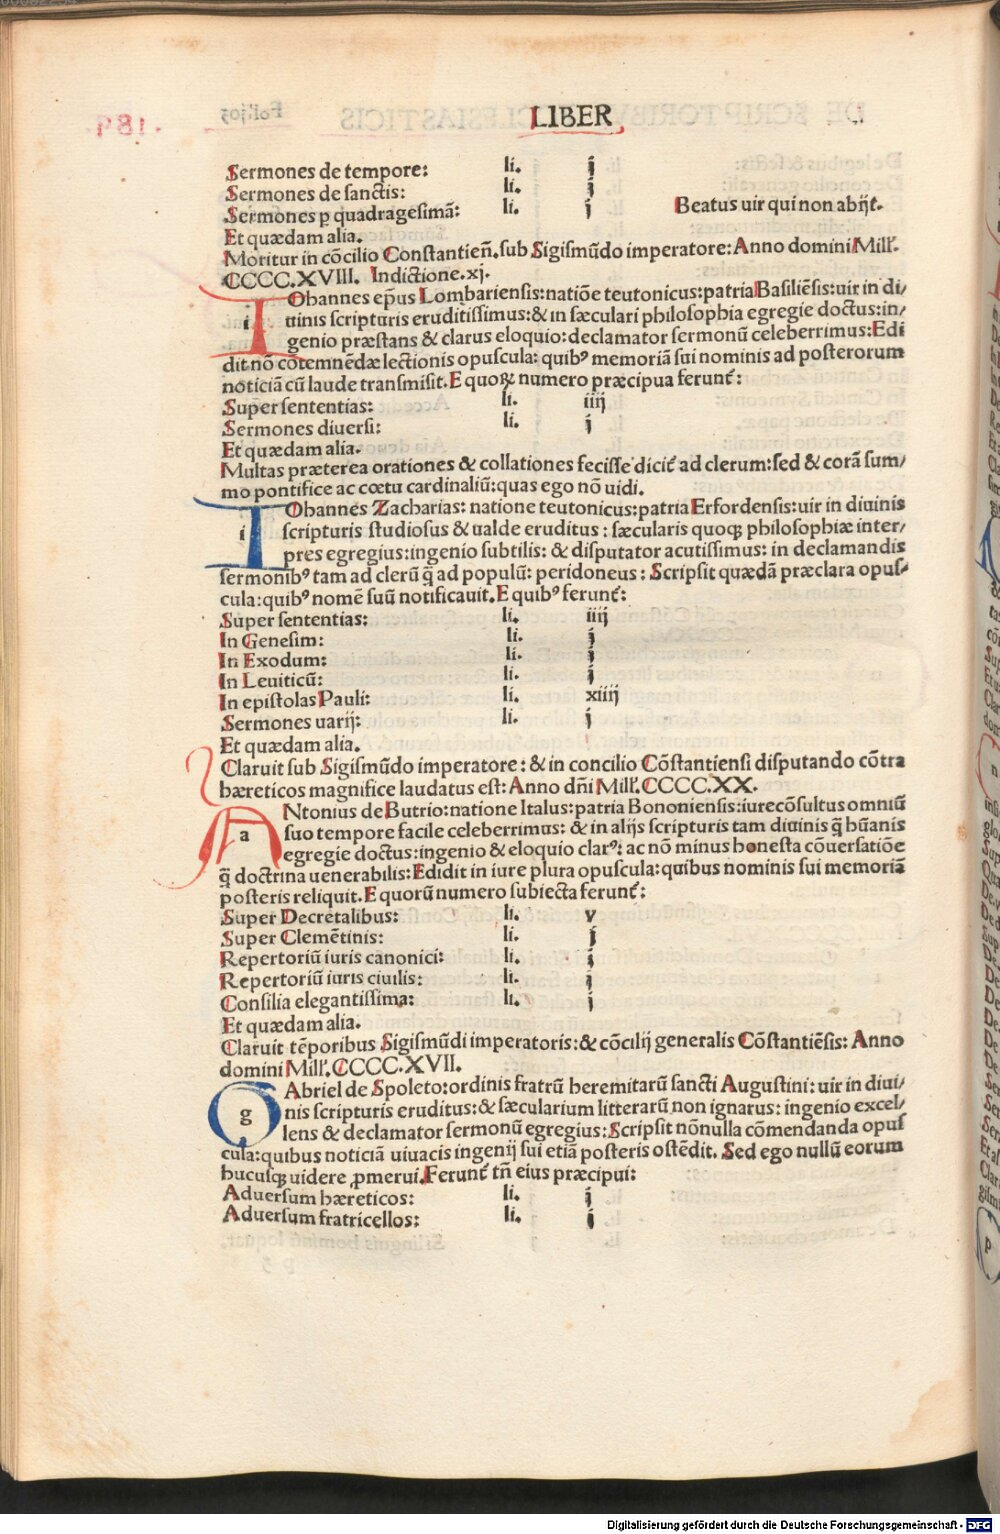 LIBER
Sermones de tempore: li. j
Sermones de sanctis: li. j
Sermones ꝑ quadragesimã: li. j Beatus uir qui non abijt.
Et quædam alia.
Moritur in cõcilio Constantieñ. sub Sigismũdo imperatore: Anno domini Mill'.
CCCC.XVIII. Indictione .xj.
IOhannes ep̃us Lombariensis: natiõe teutonicus: patria Basiliẽsis: uir in di/
i uinis scripturis eruditissimus: & in sæculari philosophia egregie doctus: in/
genio præstans & clarus eloquio: declamator sermonũ celeberrimus: Edi
dit nõ cõtemnẽdæ lectionis opuscula: quibꝰ memoriã sui nominis ad posterorum
noticiã cũ laude transmisit. E quoꝝ numero præcipua ferunt̃:
Super sententias: li. iiij
Sermones diuersi: li. j
Et quædam alia.
Multas præterea orationes & collationes fecisse dicit̃ ad clerum: sed & corã sum/
mo pontifice ac cœtu cardinaliũ: quas ego nõ uidi.
IOhannes Zacharias: natione teutonicus: patria Erfordensis: uir in diuinis
i scripturis studiosus & ualde eruditus: sæcularis quoqꝫ philosophiæ inter/
pres egregius: ingenio subtilis: & disputator acutissimus: in declamandis
sermonibꝰ tam ad clerũ q̃ ad populũ: peridoneus: Scripsit quædã præclara opus/
cula: quibꝰ nomẽ suũ notificauit. E quibꝰ ferunt̃:
Super sententias: li. iiij
In Genesim: li. j
In Exodum: li. j
In Leuiticũ: li. j
In epistolas Pauli: li. xiiij
Sermones uarij: li. j
Et quædam alia.
Claruit sub Sigismũdo imperatore: & in concilio Cõstantiensi disputando cõtra
hæreticos magnifice laudatus est: Anno dñi Mill'. CCCC.XX.
ANtonius de Butrio: natione Italus: patria Bononiensis: iurecõsultus omniũ
a suo tempore facile celeberrimus: & in alijs scripturis tam diuinis q̃ hũanis
egregie doctus: ingenio & eloquio clarꝰ: ac nõ minus honesta cõuersatiõe
q̃ doctrina uenerabilis: Edidit in iure plura opuscula: quibus nominis sui memoriã
posteris reliquit. E quorũ numero subiecta ferunt̃:
Super Decretalibus: li. v
Super Clemẽtinis: li. j
Repertoriũ iuris canonici: li. j
Repertoriũ iuris ciuilis: li. j
Consilia elegantissima: li. j
Et quædam alia.
Claruit tẽporibus Sigismũdi imperatoris: & cõcilij generalis Cõstantiẽsis: Anno
domini Mill'. CCCC.XVII.
GAbriel de Spoleto: ordinis fratrũ heremitarũ sancti Augustini: uir in diui/
g nis scripturis eruditus: & sæcularium litterarũ non ignarus: ingenio excel/
lens & declamator sermonũ egregius: Scripsit nõnulla cõmendanda opus
cula: quibus noticiã uiuacis ingenij sui etiã posteris ostẽdit. Sed ego nullũ eorum
hucusqꝫ uidere ꝓmerui. Ferunt̃ tñ eius præcipui:
Aduersum hæreticos: li. j
Aduersum fratricellos: li. j
Digitalisierung gefördert durch die Deutsche Forschungsgemeinschaft - DFG